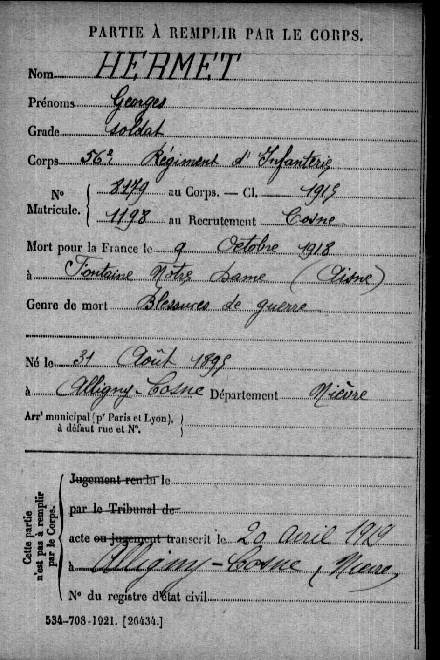 PARTIE À REMPLIR PAR LE CORPS.
Nom HERMET
Prénoms Georges
Grade soldat
Corps 56e Régiment d'Infanterie
N° Matricule. { 8179 au Corps. — Cl. 1915
1198 au Recrutement Cosne
Mort pour la France le 9 Octobre 1918
à Fontaine Notre Dame (Aisne)
Genre de mort Blessures de guerre
Né le 31 Août 1895
à Alligny-Cosne Département Nièvre
Arr^t municipal (p^r Paris et Lyon),
à défaut rue et N°.
Cette partie n'est pas à remplir par le Corps.
Jugement rendu le
par le Tribunal de
acte ou jugement transcrit le 20 avril 1919
à Alligny-Cosne (Nièvre)
N° du registre d'état civil
534-708-1921. [26434.]